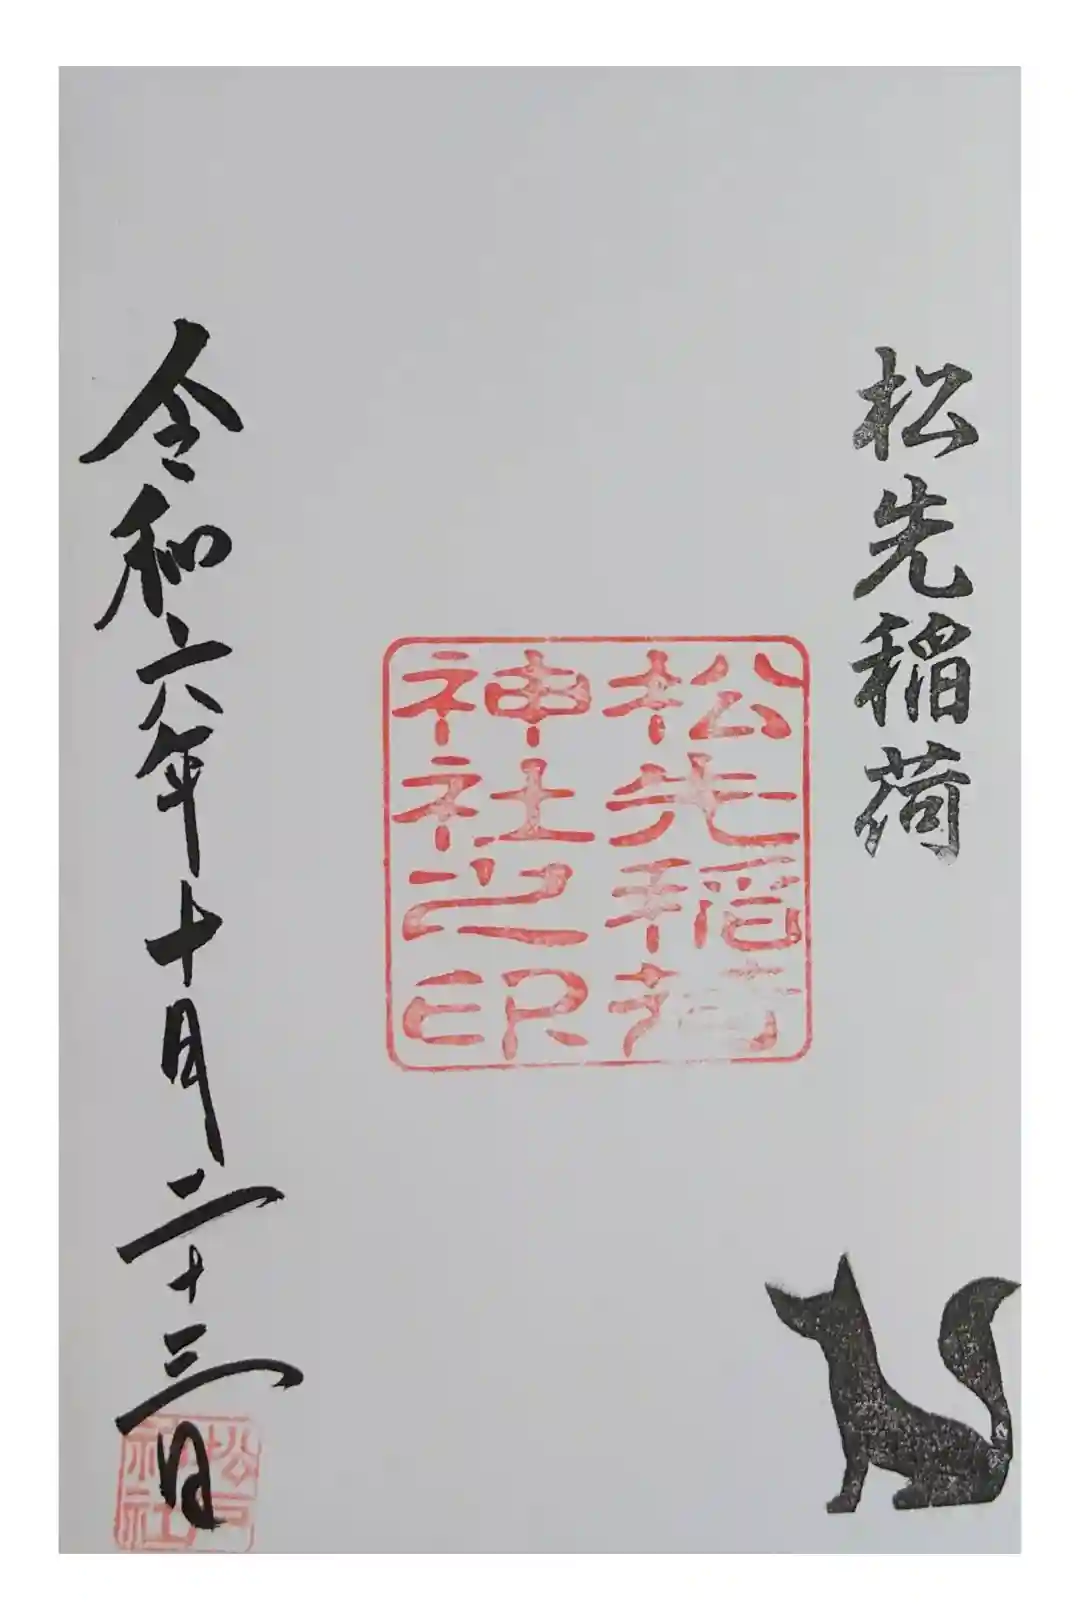 松先稲荷
松先稲荷
神社之印
令和六年十月二十三日
松戸
神社